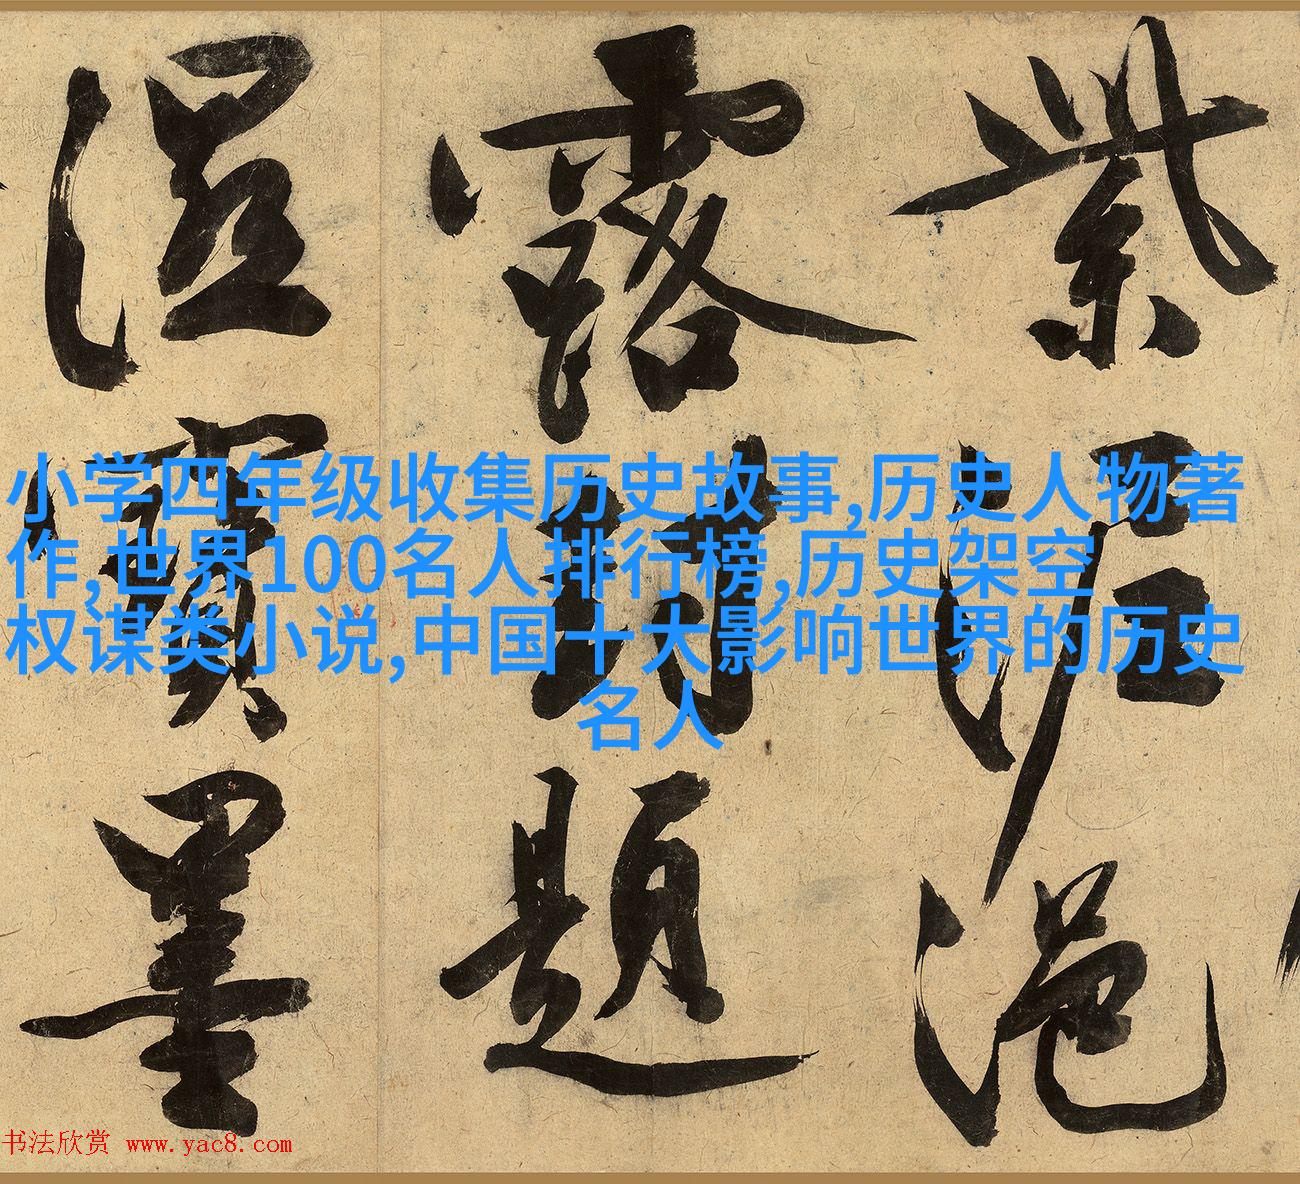 紫泥浥
露封題
濕寶墨
小学四年级收集历史故事,历史人物著
作,世界100名人排行榜,历史架空
权谋类小说,中国十大影响世界的历史
名人
书法欣赏 www.yac8.com